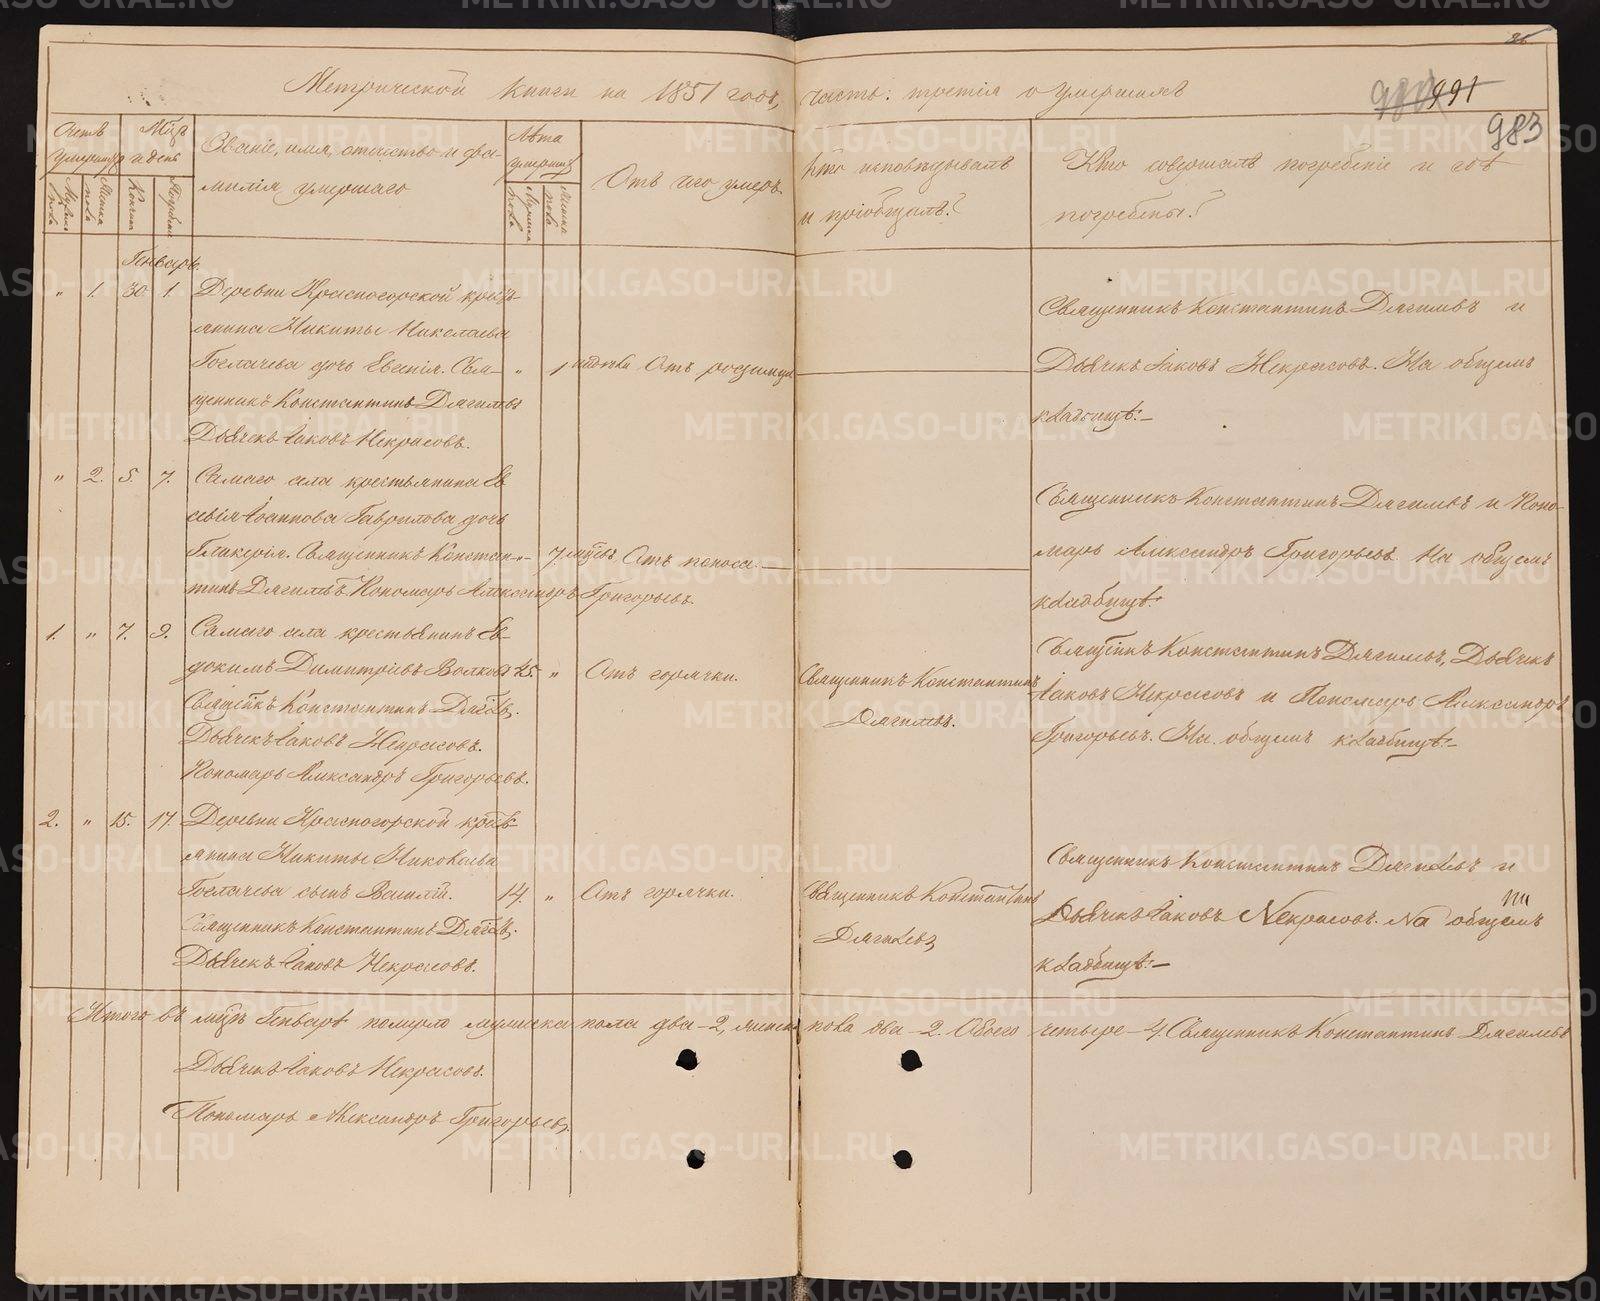 Метрической книги на 1851 годъ, часть третія о умершихъ
991
983
Счетъ умершихъ
Мужеска пола
Женска пола
Мѣсяцъ и день
Кончины
Погребенія
Званіе, имя, отчество и фа-
милія умершаго
Лѣта умершаго
Мужеска пола
Женска пола
Отъ чего умеръ
Кто исповѣдывалъ
и пріобщалъ?
Кто совершалъ погребеніе и гдѣ
погребены?
Генварь.
" 1. 30 1. Деревни Красногорской крестъ-
янина Никиты Николаева
дочь Евгенія. Свя- " 1 Отъ
щенникъ Константинъ Дягилевъ
Дьячекъ Іаковъ Некрасовъ.
Священникъ Константинъ Дягилевъ и
Дьячекъ Іаковъ Некрасовъ. На общемъ
кладбищѣ.-
" 2. 5. 7. Самаго села крестьянина Ев
севія Іоаннова Гаврилова дочь
Гликерія. Священникъ Констан- " 7. мѣсяц. Отъ поноса.
тинъ Дягилевъ. Пономарь Александръ Григорьевъ.
Священникъ Константинъ Дягилевъ и Поно-
марь Александръ Григорьевъ. На общемъ
кладбищѣ.
1. " 7. 9. Самаго села крестьянинъ Ев-
докимъ Димитріевъ Волковъ 45. " Отъ горячки.
Свящѣнкъ Константинъ Дягилевъ.
Дьячекъ Іаковъ Некрасовъ.
Пономарь Александръ Григорьевъ.
Священникъ Константинъ
Дягилевъ.
Священникъ Константинъ Дягилевъ, Дьячекъ
Іаковъ Некрасовъ и Пономарь Александръ
Григорьевъ. На общемъ кладбищѣ.-
2. " 15. 17. Деревни Красногорской крестъ-
янина Никиты Николаева
сынъ Василій. 14. " Отъ горячки.
Священникъ Константинъ Дягилевъ.
Дьячекъ Іаковъ Некрасовъ.
Священникъ Константинъ
Дягилевъ
Священникъ Константинъ Дягилевъ и
Дьячекъ Іаковъ Некрасовъ. На общемъ
кладбищѣ.-
Итого въ мѣсяцѣ Генварѣ померло мужеска пола два - 2, женска пола два - 2. Обоего четыре - 4. Священникъ Константинъ Дягилевъ
Дьячекъ Іаковъ Некрасовъ.
Пономарь Александръ Григорьевъ.
METRIKI.GASO-URAL.RU